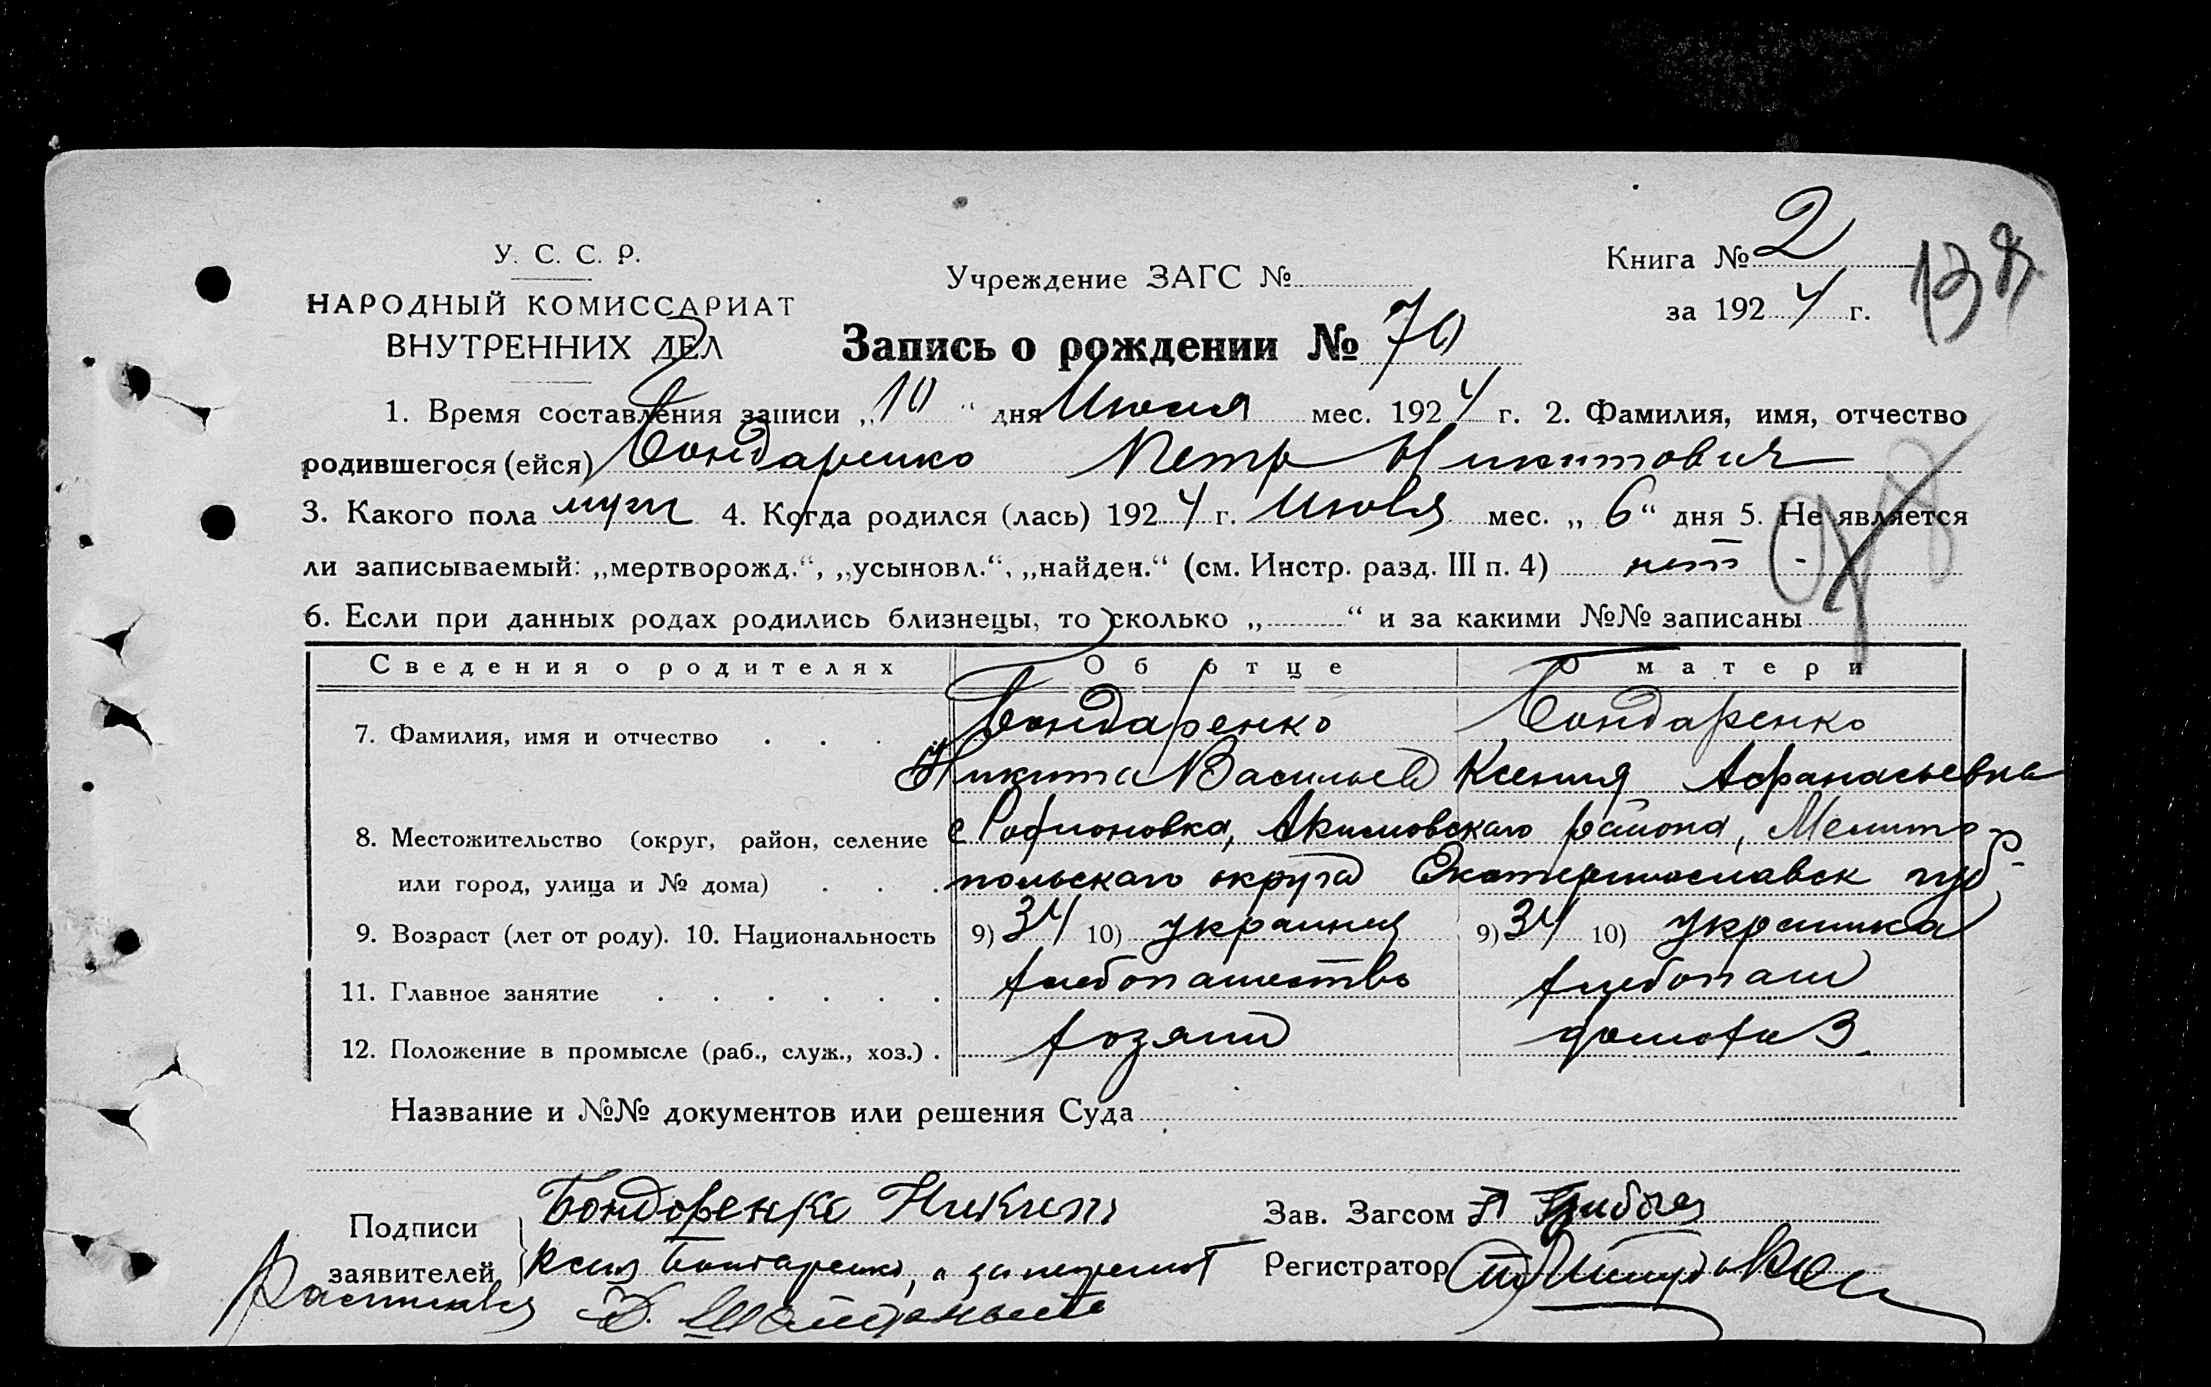 У. С. С. Р.
НАРОДНЫЙ КОМИССАРИАТ
ВНУТРЕННИХ ДЕЛ
Учреждение ЗАГС №
Книга № 2
за 1924 г.
138
Запись о рождении № 70
1. Время составления записи „10“ дня Июля мес. 1924 г. 2. Фамилия, имя, отчество
родившегося (ейся) Бондаренко Петр Никитович
3. Какого пола муж 4. Когда родился (лась) 1924 г. Июля мес. „6“ дня 5. Не является
ли записываемый: „мертворожд.“, „усыновл.“, „найден.“ (см. Инстр. разд. III п. 4) нет
6. Если при данных родах родились близнецы, то сколько „ “ и за какими №№ записаны
Сведения о родителях Об отце О матери
7. Фамилия, имя и отчество Бондаренко Бондаренко
Никита Васильев Ксения Афанасьевна
8. Местожительство (округ, район, селение с Родионовка, Акимовскаго района, Мелито-
или город, улица и № дома) польскаго округа Екатеринославск губ
9. Возраст (лет от роду). 10. Национальность 9) 34 10) украинец 9) 34 10) украинка
11. Главное занятие хлебопашество хлебопаш
12. Положение в промысле (раб., служ., хоз.) хозяин домохоз
Название и №№ документов или решения Суда
Подписи Бондоренко Никита Зав. Загсом
заявителей Бондаренко, а за неграмот Регистратор
Расписався